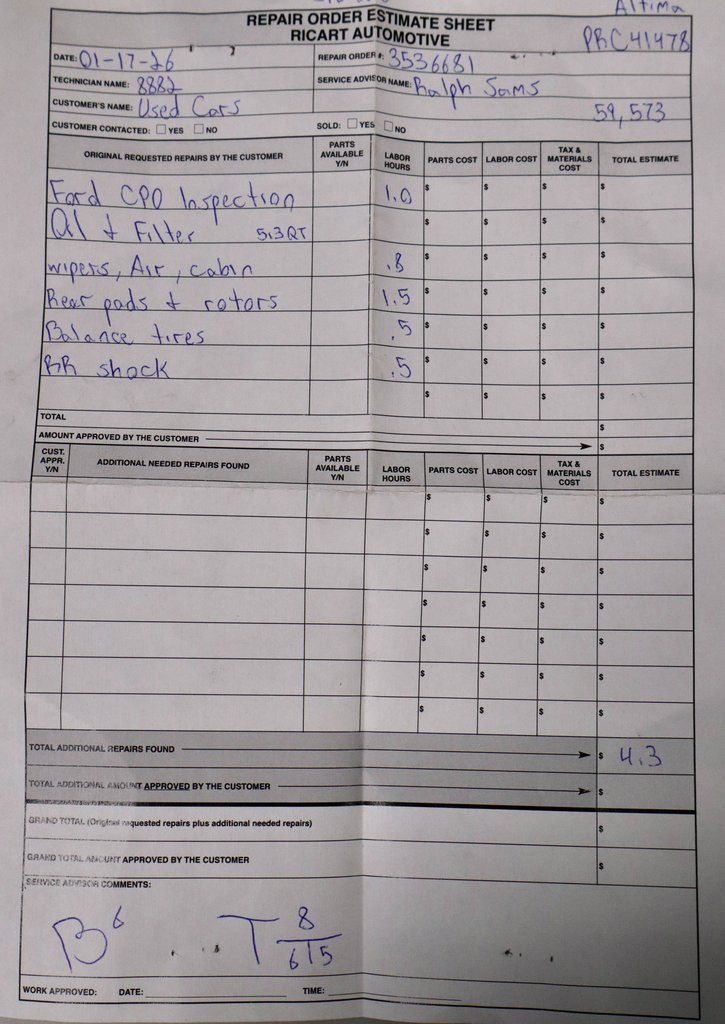 Altima
REPAIR ORDER ESTIMATE SHEET
RICART AUTOMOTIVE
PRC41478
DATE: 01-17-26
REPAIR ORDER #: 3536681
TECHNICIAN NAME: 8882
SERVICE ADVISOR NAME: Ralph Sams
CUSTOMER'S NAME: Used Cars
59,573
CUSTOMER CONTACTED: YES NO
SOLD: YES NO
ORIGINAL REQUESTED REPAIRS BY THE CUSTOMER PARTS AVAILABLE Y/N LABOR HOURS PARTS COST LABOR COST TAX & MATERIALS COST TOTAL ESTIMATE
Ford CPO Inspection 1.0 $ $ $ $
Oil & Filter 5.3QT $ $ $ $
wipers, Air, cabin .8 $ $ $ $
Rear pads & rotors 1.5 $ $ $ $
Balance tires .5 $ $ $ $
RR shock .5 $ $ $ $
$ $ $ $
TOTAL $
AMOUNT APPROVED BY THE CUSTOMER $
CUST. APPR. Y/N ADDITIONAL NEEDED REPAIRS FOUND PARTS AVAILABLE Y/N LABOR HOURS PARTS COST LABOR COST TAX & MATERIALS COST TOTAL ESTIMATE
$ $ $ $
$ $ $ $
$ $ $ $
$ $ $ $
$ $ $ $
$ $ $ $
$ $ $ $
TOTAL ADDITIONAL REPAIRS FOUND $ 4.3
TOTAL ADDITIONAL AMOUNT APPROVED BY THE CUSTOMER $
GRAND TOTAL (Original requested repairs plus additional needed repairs) $
GRAND TOTAL AMOUNT APPROVED BY THE CUSTOMER $
SERVICE ADVISOR COMMENTS:
B 6 T 8
6 5
WORK APPROVED: DATE: TIME: